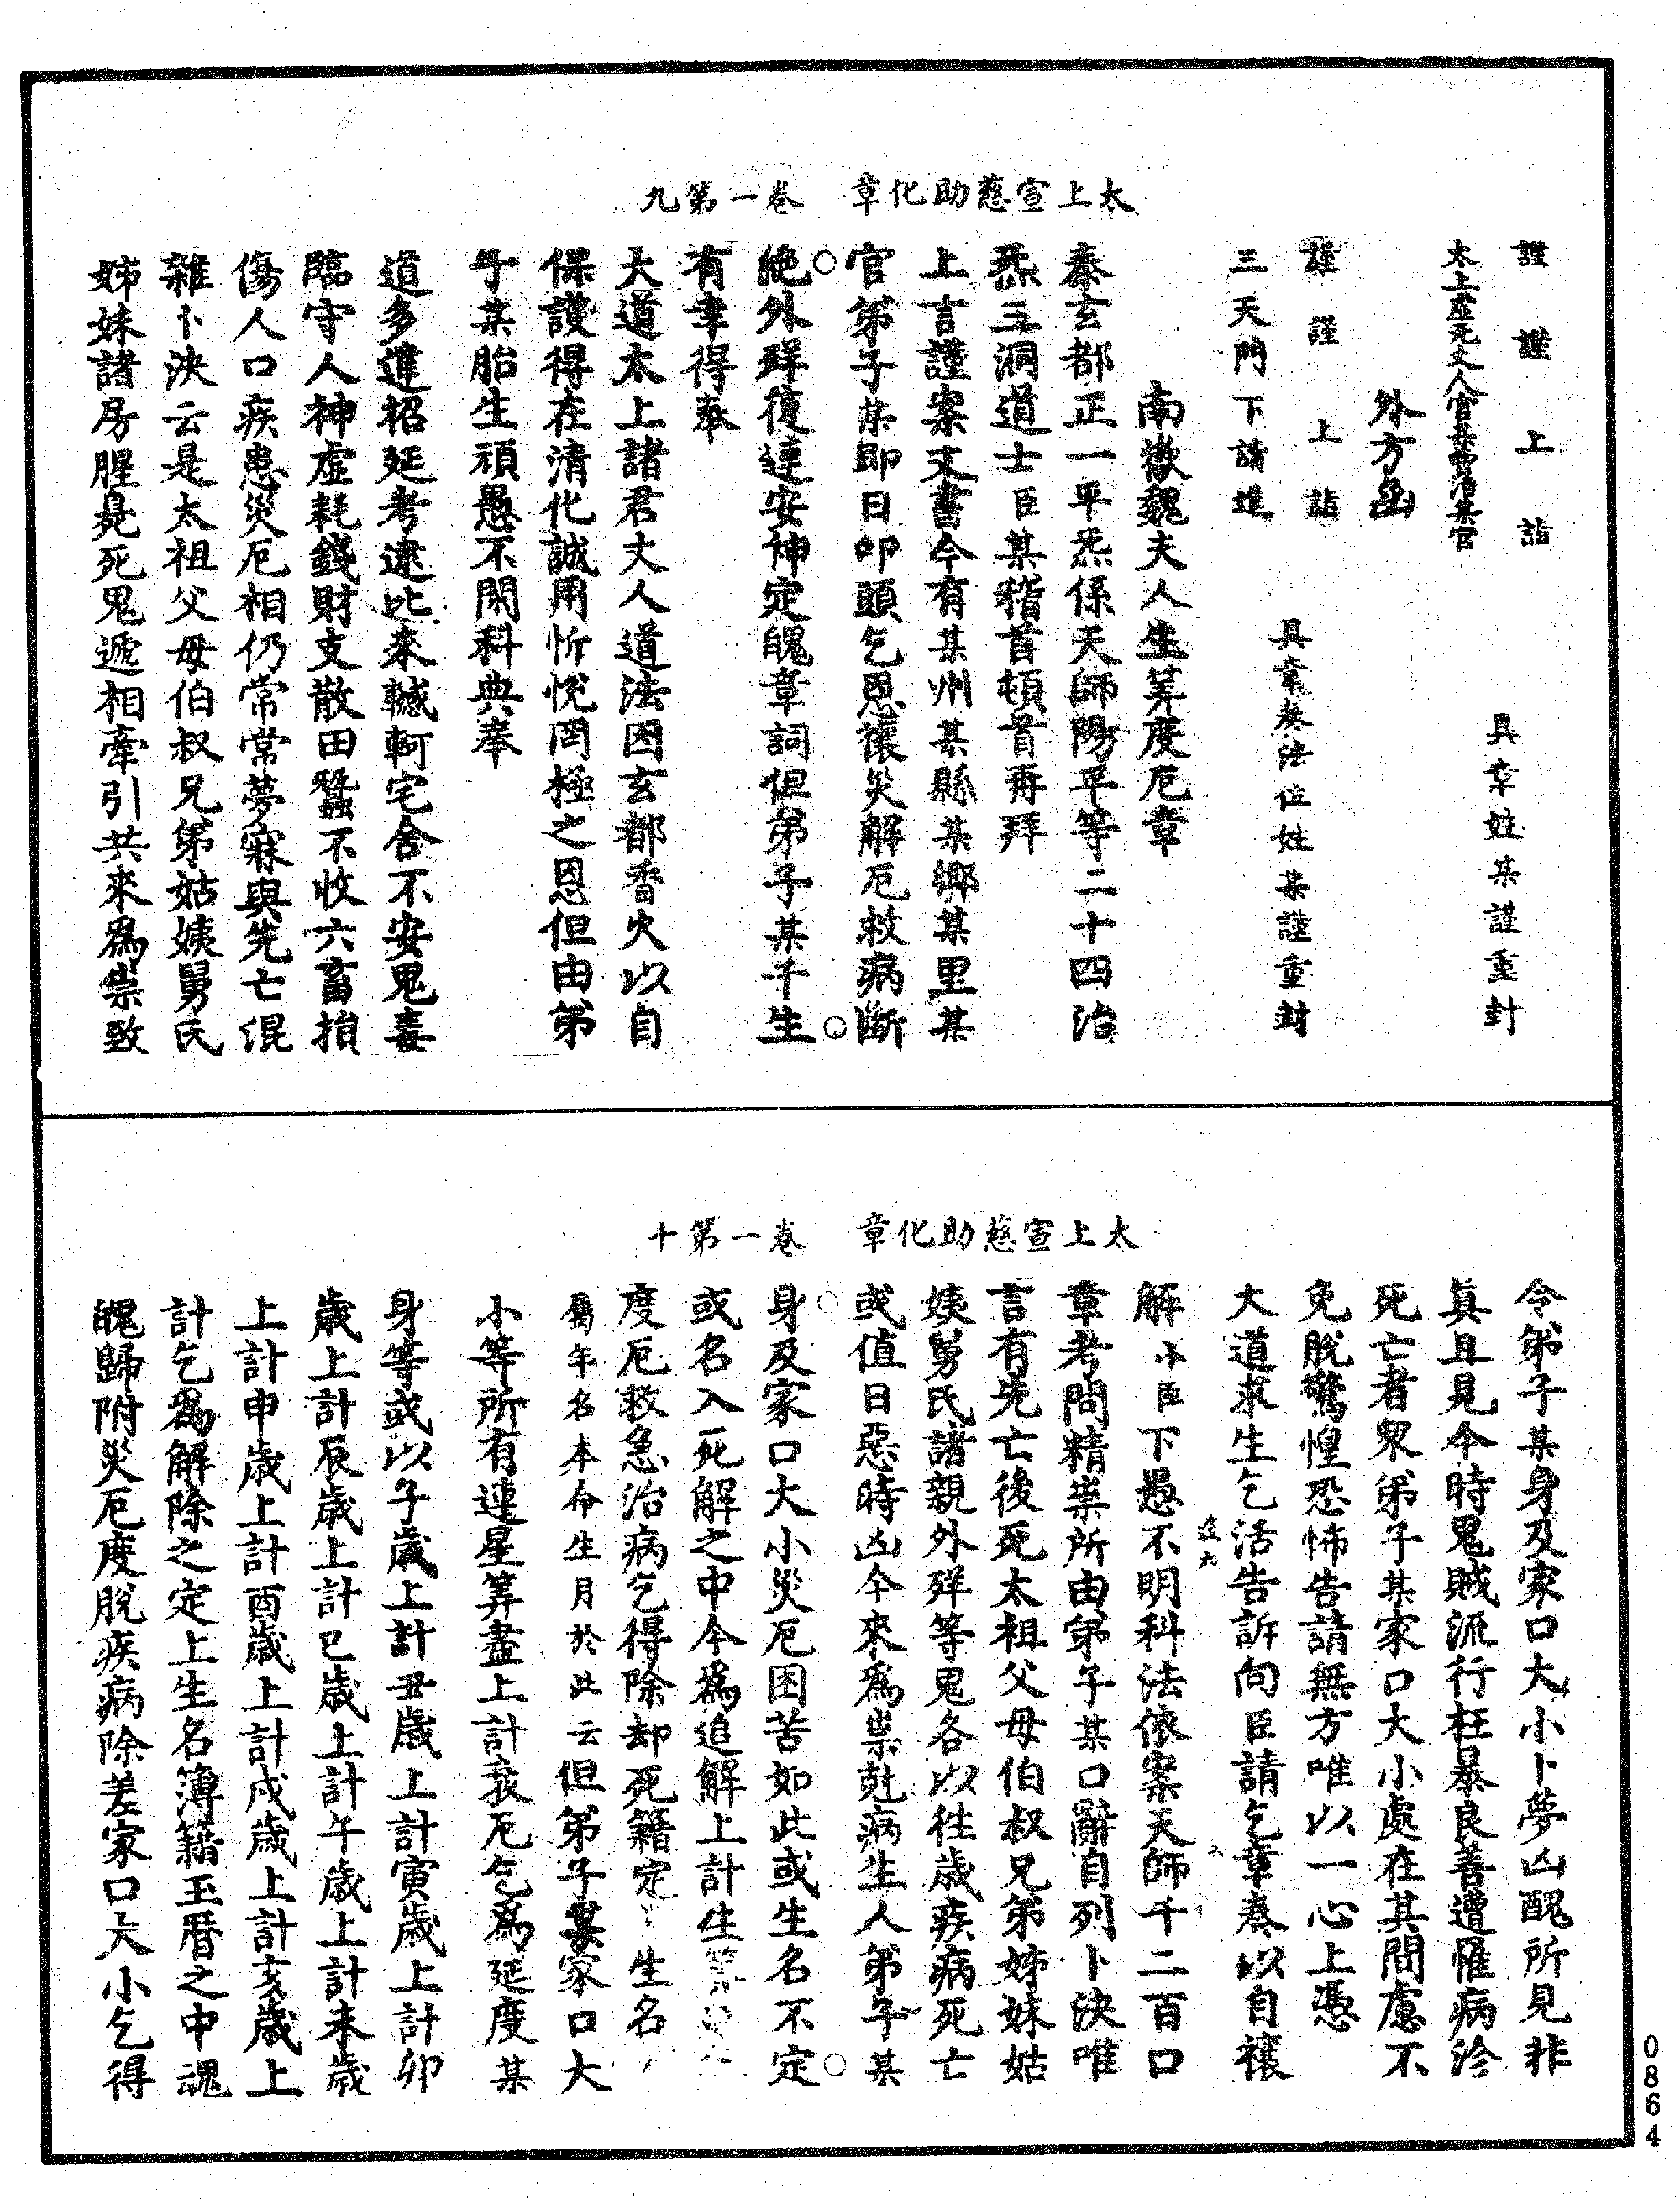 太上宣慈助化章　卷一第九
謹謹上詣
具章姓某謹重封
太上虛无丈人官某曹治某官
外方函
謹謹上詣
具章奏法位姓某謹重封
三天門下請進
南嶽魏夫人生筭度厄章
泰玄都正一平炁係天師陽平等二十四治
炁三洞道士臣某稽首頓首再拜
上言謹案文書今有某州某縣某鄉某里某
官弟子某即日叩頭乞恩禳災解厄救病斷
絕外殃復連安神定魄章詞但弟子某千生
有幸得奉
大道太上諸君丈人道法因玄都香火以自
保護得在清化誠用忻悅罔極之恩但由弟
子某胎生頑愚不閑科典奉
道多違招延考逮比來轗軻宅舍不安鬼毒
臨守人神虛耗錢財支散田蠶不收六畜損
傷人口疾患災厄相仍常常夢寐與先亡混
雜卜決云是太祖父母伯叔兄弟姑姨舅氏
姊妹諸房腥㒵死鬼遞相牽引共來為祟致
太上宣慈助化章　卷一第十
令弟子某身及家口大小卜夢凶醜所見非
真且見今時鬼賊流行枉暴良善遭罹病沴
死亡者眾弟子某家口大小處在其間慮不
免脫驚惶恐怖告請無方唯以一心上憑
大道求生乞活告訴向臣請乞章奏以自禳
解小臣下愚不明科法依案天師千二百口
章考問精祟所由弟子某口辭自列卜決唯
言有先亡後死太祖父母伯叔兄弟姊妹姑
姨舅氏諸親外殃等鬼各以往歲疾病死亡
或值日惡時凶今來為祟尅病生人弟子某
身及家口大小災厄困苦如此或生名不定
或名入死解之中今為追解上計生筭
度厄救急治病乞得除却死籍定生名
屬年名本命生月於此云但弟子某家口大
小等所有連星筭盡上計衰厄乞為延度某
身等或以子歲上計丑歲上計寅歲上計卯
歲上計辰歲上計巳歲上計午歲上計未歲
上計申歲上計酉歲上計戌歲上計亥歲上
計乞為解除之定上生名簿籍玉曆之中魂
魄歸附災厄度脫疾病除差家口大小乞得
0864